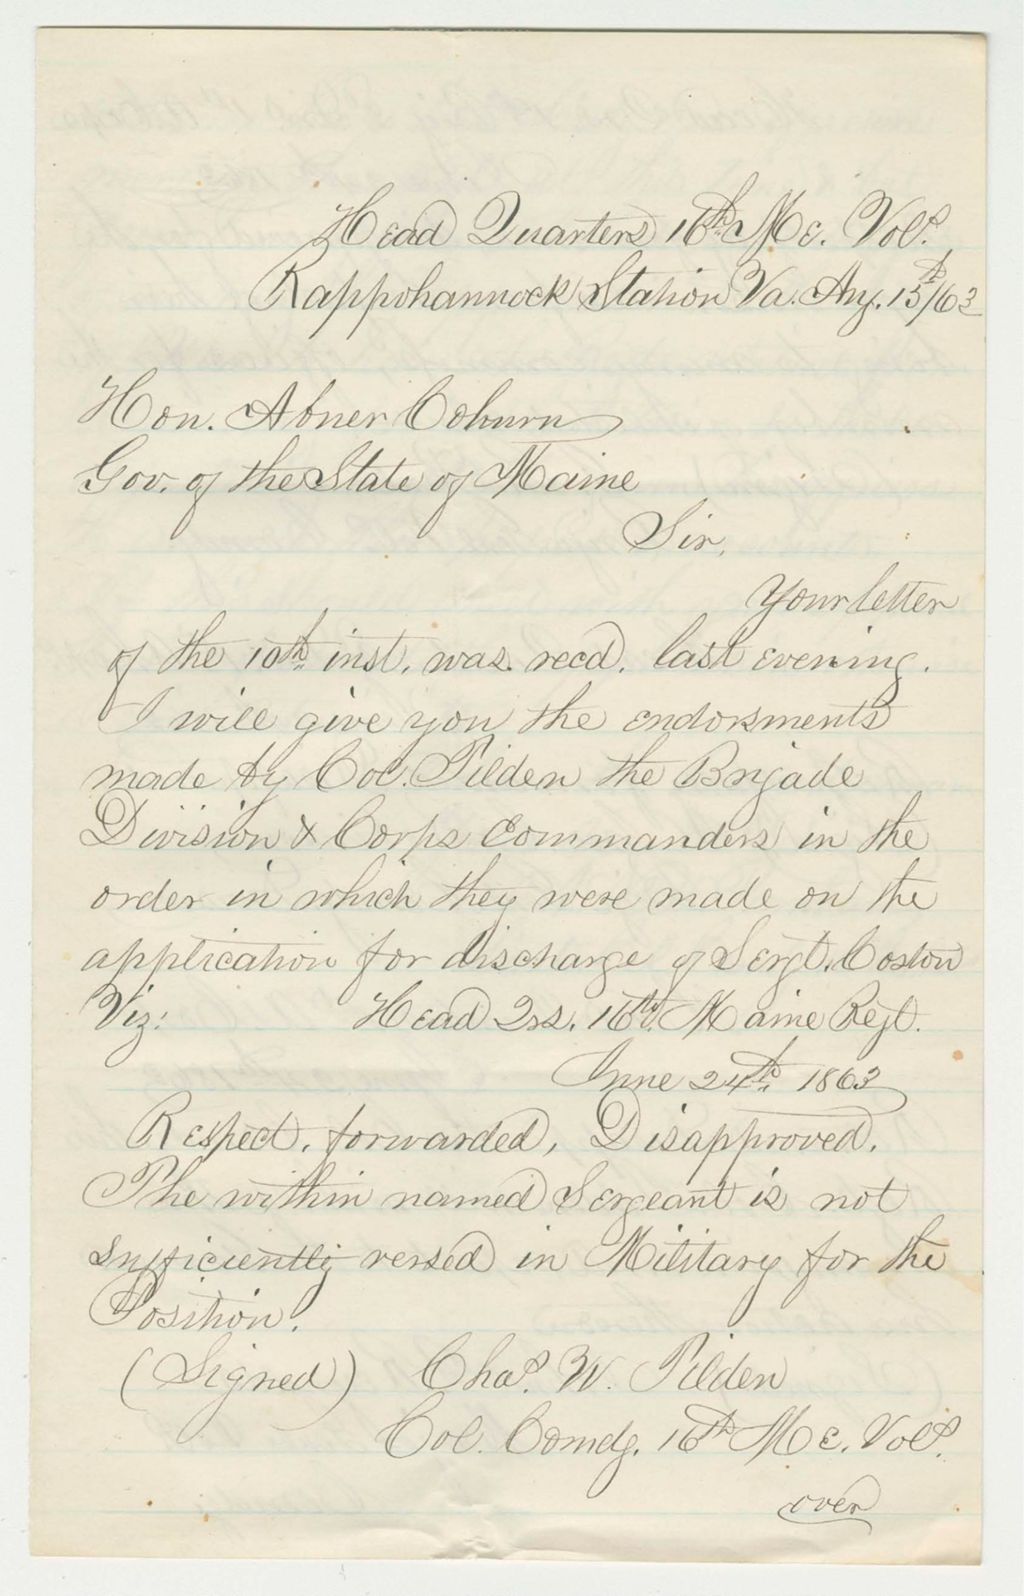 Head Quarters 16th Me. Vols.
Rappohannock Station Va. Aug. 15th/63
Hon. Abner Coburn
Gov. of the State of Maine
Sir,
Your letter
of the 10th inst. was recd. last evening.
I will give you the endorsments
made by Col. Tilden the Brigade
Division & Corps Commanders in the
order in which they were made on the
application for discharge of Sergt. Coston
Viz: Head Qrs. 16th. Maine Regt.
June 24th. 1863
Respect. forwarded, Disapproved.
The within named Sergeant is not
sufficiently versed in Military for the
Position.
(Signed) Chas. W. Tilden
Col. Comdg. 16th Me. Vols.
over